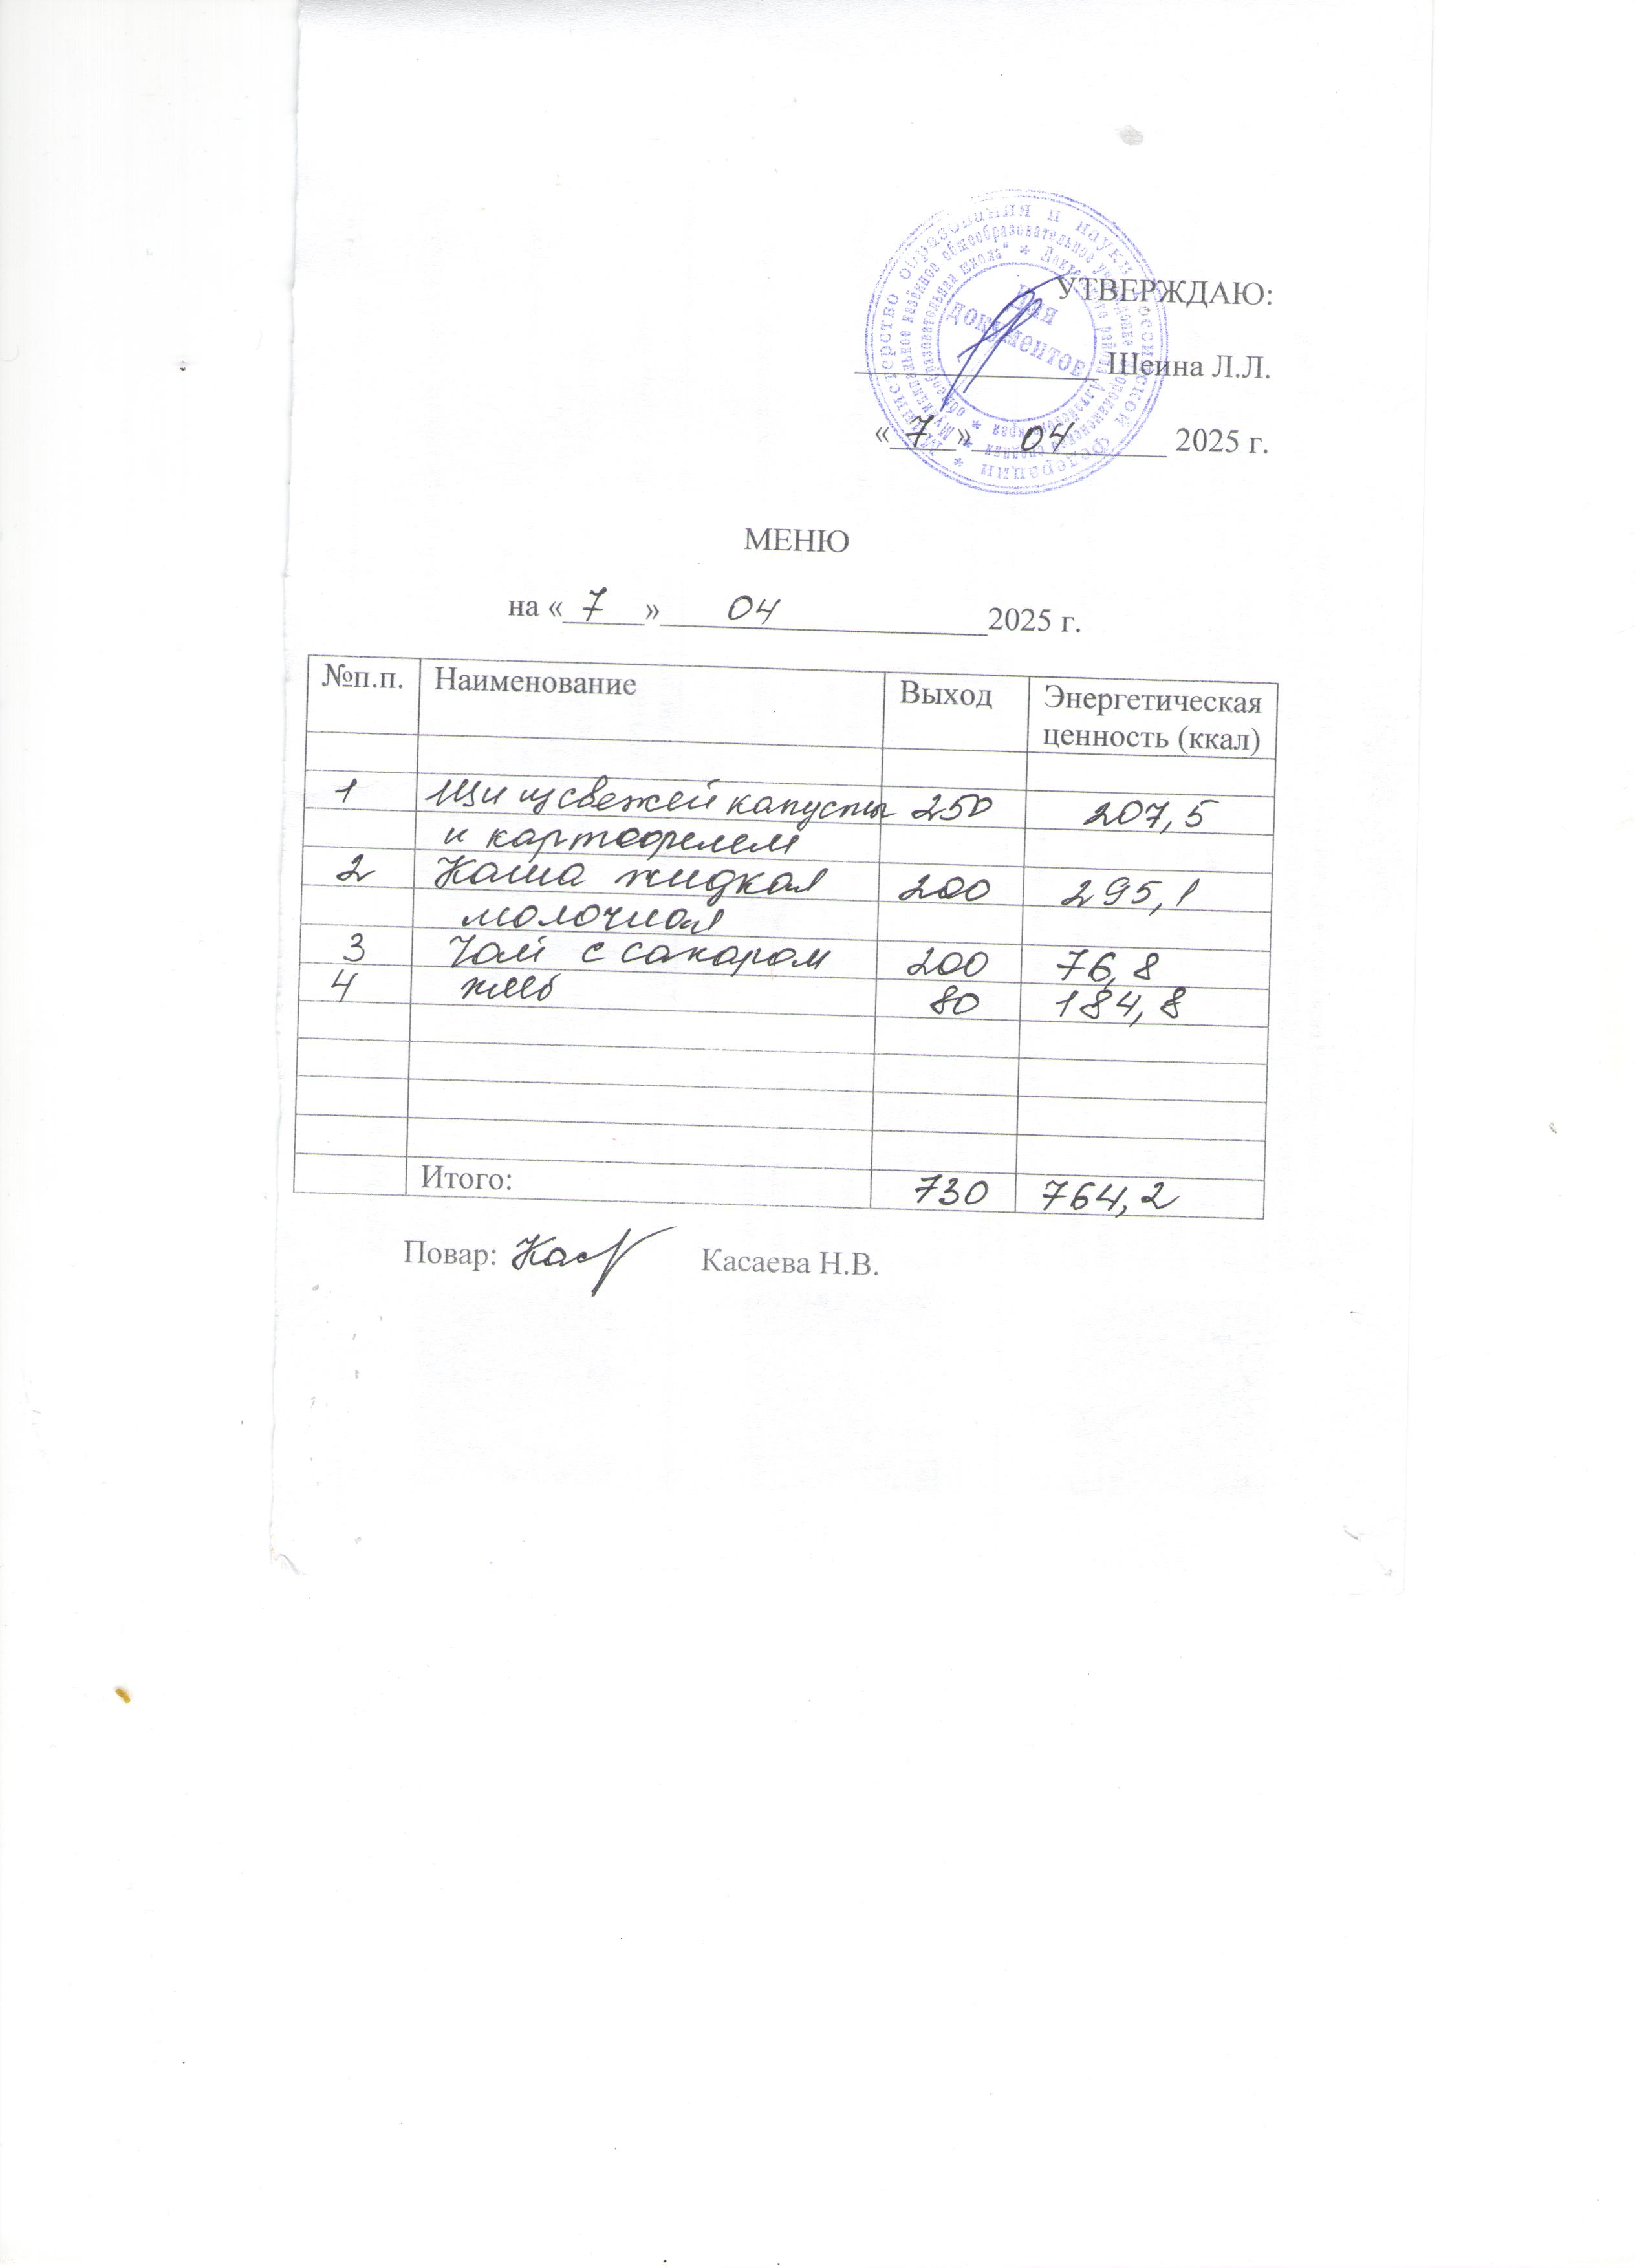 УТВЕРЖДАЮ:
Шеина Л.Л.
«7» 04 2025 г.
Министерство образования и науки Российской Федерации *
Муниципальное казённое общеобразовательное учреждение
общеобразовательная школа" *
края *
Для
документов
МЕНЮ
на «7» 04 2025 г.
№п.п. Наименование Выход Энергетическая
ценность (ккал)
1 Щи из свежей капусты 250 207,5
и картофелем
2 Каша жидкая 200 295,1
молочная
3 Чай с сахаром 200 76,8
4 хлеб 80 184,8
Итого: 730 764,2
Повар: Касаева Н.В.